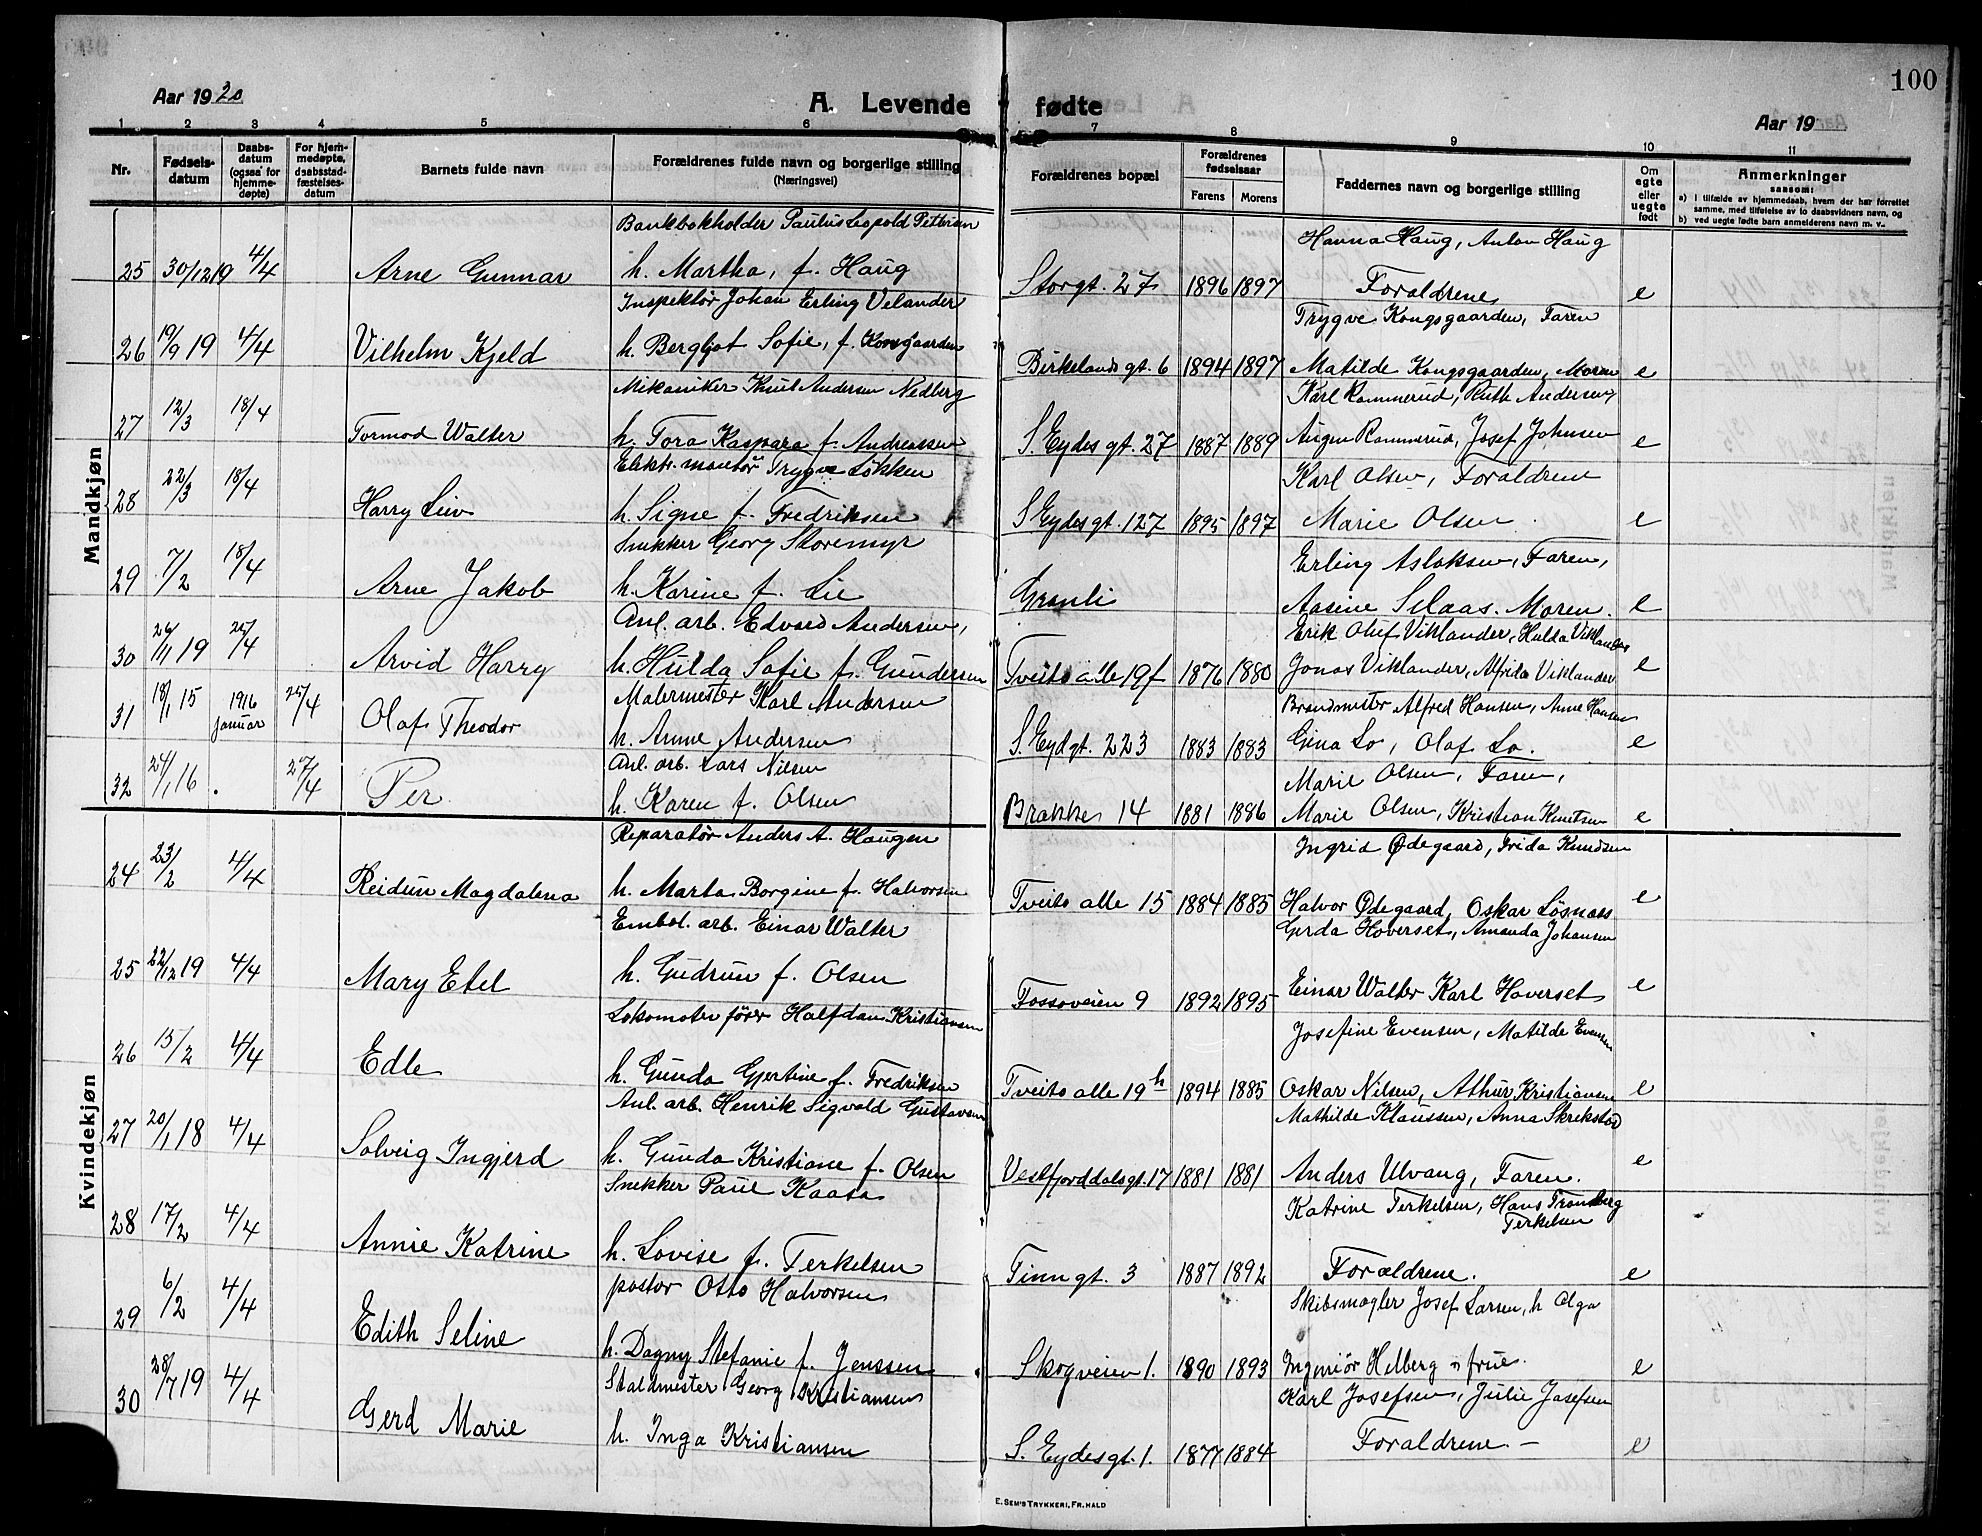 100
Aar 1920
A. Levende fødte
Aar 19
1 2 3 4 5 6 7 8 9 10 11
Nr. Fødsels-datum Daabs-datum (ogsaa for hjemme-døpte) For hjem-medøpte, daabsstad-fæstelses-datum Barnets fulde navn Forældrenes fulde navn og borgerlige stilling (Næringsvei) Forældrenes bopæl Forældrenes fødselsaar Farens Morens Faddernes navn og borgerlige stilling Om egte eller uegte født Anmerkninger
saasom:
a) I tilfælde av hjemmedaab, hvem der har forrettet samme, med tilføielse av to daabsvidners navn, og
b) ved uegte fødte barn anmelderens navn m. v.
Mandkjøn
Bankbokholder Paulus Leopold Pettersen Hanna Haug, Anton Haug
25 30/12 19 4/4 Arne Gunnar h. Martha, f. Haug Storgt. 27 1896 1897 Foraldrene e
Inspektör Johan Erling Velander Trygve Kongsgaarden, Faren
26 19/9 19 4/4 Vilhelm Kjeld h. Bergljot Sofie, f. Konsgaarden Birkelands gt. 6 1894 1897 Matilde Kongsgaarden, Moren e
Mikaniker Knut Andersen Nedberg Karl Rommerud, Ruth Andersen,
27 12/3 18/4 Tormod Walter h. Tora Kaspara f. Andreassen S. Eydes gt. 27 1887 1889 Rommerud, Josef Johnsen e
Elektr. montör Trygve Løkken Karl Olsen, Foraldrene
28 22/3 18/4 Harry h. Signe f. Fredriksen S Eydes gt. 127 1895 1897 Marie Olsen e
Snekker Georg Storemyr Erling Aslaksen, Faren,
29 7/2 18/4 Arne Jakob h. Karine f. Lie Granli Aasine Selaas. Moren. e
Anl. arb. Edvard Andersen, Erik Olaf Viklander, Hulda Viklander
30 26/11 19 25/4 Arvid Harry h. Hulda Sofie f. Gundersen Tveito alle 19f 1876 1880 Jonas Viklander, Alfrida Viklander e
Malermester Karl Andersen Brandmester Alfred Hansen, Anne Hansen
31 18/1 15 1916 Januar 25/4 Olaf Theodor h. Anne Andersen S. Eyd gt. 223 1883 1883 Gina Lo, Olaf Lo. e
Anl. arb. Lars Nilsen Marie Olsen, Faren,
32 24/1 16. 27/4 Per h. Karen f. Olsen Brakke 14 1881 1886 Marie Olsen, Kristian Knutsen e
Kvindekjøn
Reparatør Anders A. Haugen Ingrid Ødegaard, Frida Knudsen
24 23/2 4/4 Reidun Magdalena h. Marta Borgine f. Halvorsen Tveito alle 15 1884 1885 Halvor Ødegaard, Oskar Løsnaes e
Embal. arb. Einar Walter Gerda Hoverset, Amanda Johansen
25 22/12 19 4/4 Mary Etel h. Gudrun f. Olsen Fossoveien 9 1892 1895 Einar Walter Karl Hoverset e
Lokomotivfører Halfdan Kristiansen Josefine Evensen, Matilde Evensen
26 15/2 4/4 Edle h. Gunda Gjertine f. Fredriksen Tveito alle 19h 1894 1885 Oskar Nilsen, Athur Kristiansen e
Anl. arb. Henrik Sigvald Gustavsen Mathilde Klaussen, Anna Skrikstad
27 20/1 18 4/4 Solveig Ingjerd h. Gunda Kristiane f. Olsen Vestfjorddalsgt. 17 1881 1881 Anders Ulvang, Faren. e
Snekker Paul Kaasa Katrine Terkelsen, Hans Tronberg Terkelsen
28 17/2 4/4 Annie Katrine h. Lovise f. Terkelsen Tinn gt. 3 1887 1892 Forældrene. e
pastor Otto Halvorsen Skibsmægler Josef Larsen, h Olga
29 6/2 4/4 Edith Seline h. Dagny Stefanie f. Jenssen Skogveien 1. 1890 1893 Ingeniör Helberg og frue. e
Staldmester Georg Kristiansen Karl Josefsen, Julie Josefsen
30 28/7 19 4/4 Gerd Marie h. Inga Kristiansen S. Eydesgt. 1. 1877 1884 Foraldrene. – e
E. SEM'S TRYKKERI, FR. HALD